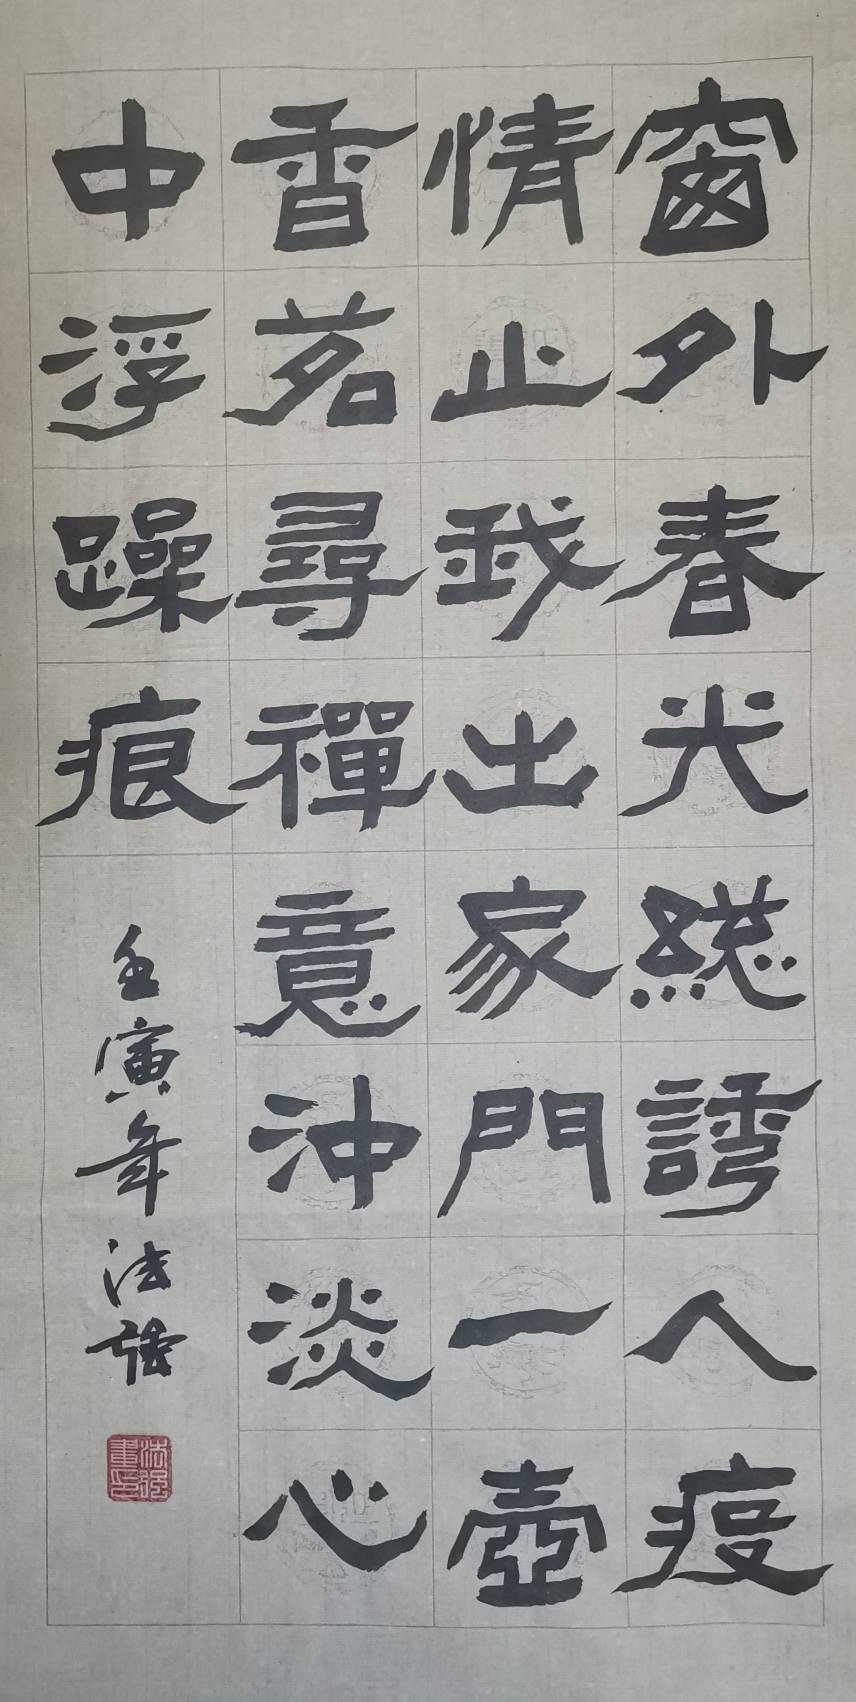 窗外春光總誘人疫
情止我出家門一壺
香茗尋禪意沖淡心
中浮躁痕
壬寅年法强
法强書印